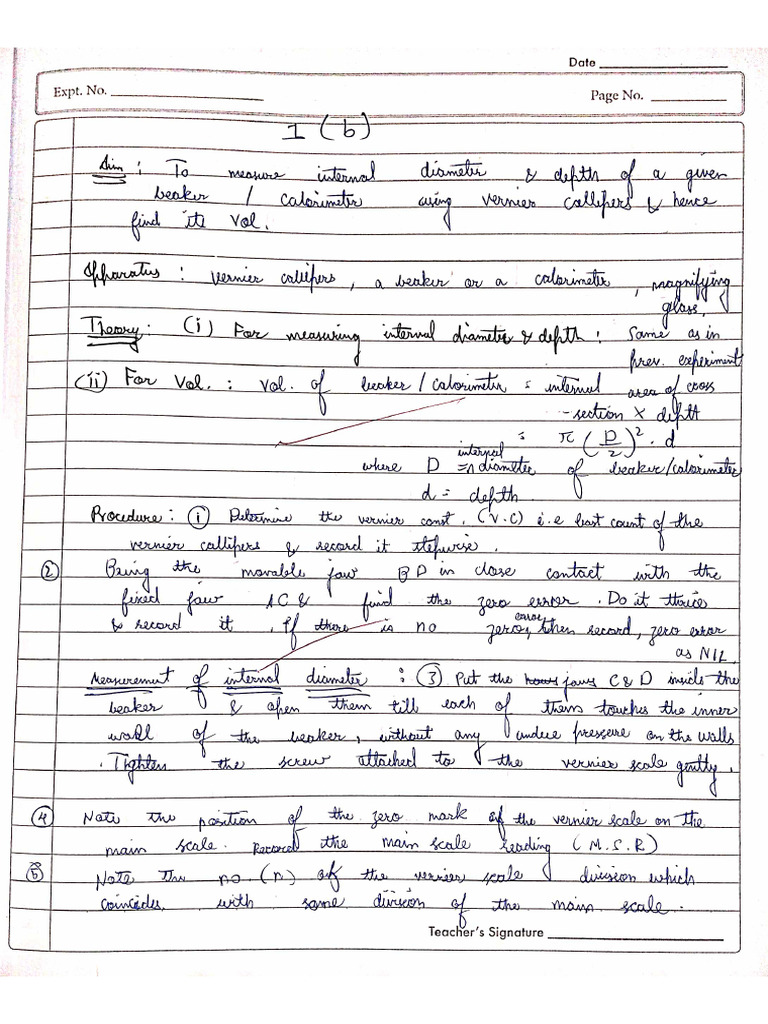 Date
Expt. No.
Page No.
1 (b)
Aim : To measure internal diameter & depth of a given
beaker / calorimeter using vernier callipers & hence
find its vol.
Apparatus : vernier callipers, a beaker or a calorimeter, magnifying
glass.
Theory : (i) For measuring internal diameter & depth : same as in
prev. experiment
(ii) For Vol. : vol. of beaker / calorimeter = internal area of cross
-section × depth
= π (D/2)². d
where D = internal diameter of beaker/calorimeter
d = depth.
Procedure : (i) Determine the vernier const. (V.C) i.e least count of the
vernier callipers & record it stepwise.
(2) Bring the movable jaw BD in close contact with the
fixed jaw AC & find the zero error. Do it thrice
& record it. If there is no zero error, then record, zero error
as NIL.
Measurement of internal diameter : (3) Put the jaws C & D inside the
beaker & open them till each of them touches the inner
wall of the beaker, without any undue pressure on the walls
. Tighten the screw attached to the vernier scale gently.
(4) Note the position of the zero mark of the vernier scale on the
main scale. Record the main scale reading (M.S.R)
(5) Note the no. (n) of the vernier scale division which
coincides with some division of the main scale.
Teacher's Signature